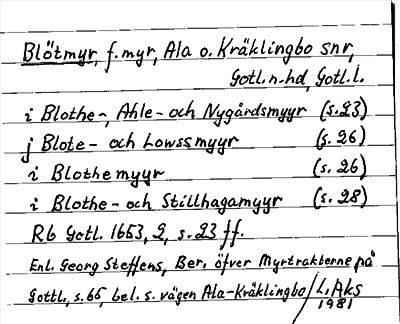 Blötmyr, f. myr, Ala o. Kräklingbo snr,
Gotl. n. hd, Gotl. l.
i Blothe-, Ahle- och Nygårdsmyyr (s. 23)
j Blote- och Lowssmyyr (s. 26)
i Blothemyyr (s. 26)
i Blothe- och Stillhagamyyr (s. 28)
Rb Gotl. 1653, 2, s. 23 ff.
Enl. Georg Steffens, Ber. öfver Myrtrakterne på
Gottl., s. 65, bel. s. vägen Ala-Kräklingbo/L. Aks
1981